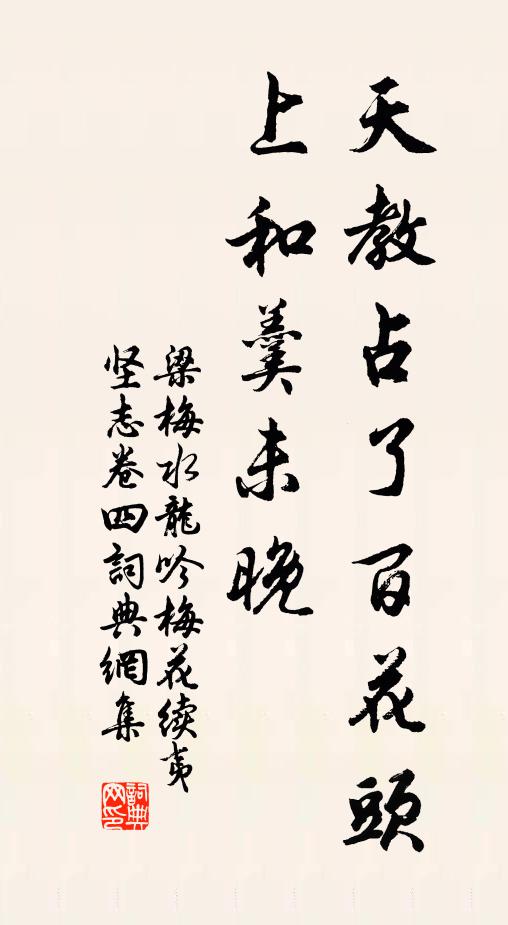 天教占了百花頭
上和羹未晚
梁梅水龍吟梅花续夷
坚志卷四詞典網集
詞典网印